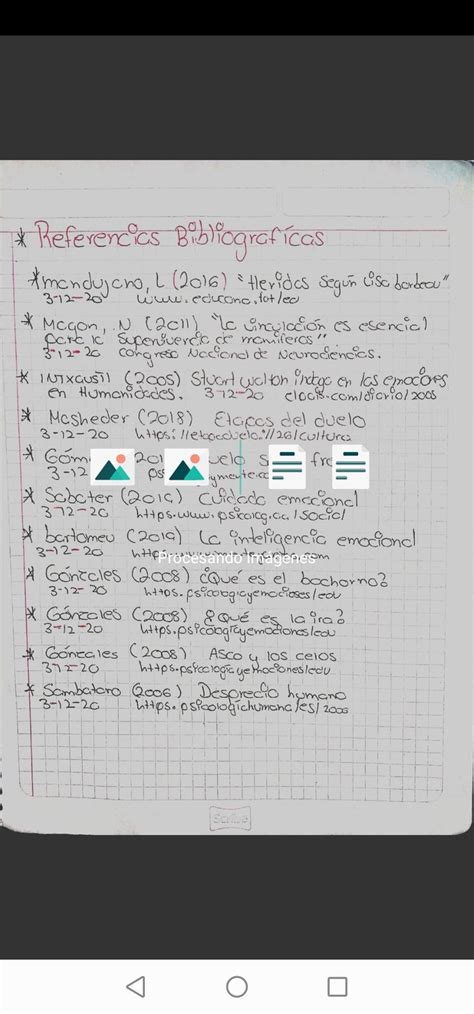 * Referencias Bibliograficas
*mandujano, L (2016) "Heridas según Lisa bordeau"
3-12-20 www.educana.tot/ed
* Magon, N (2011) "la vinculación es esencial
para la Supervivencia de mamíferos"
3-12-20 Congreso Nacional de Neurociencias.
* (2005) Stuart walton indaga en las emociones
en Humanidades. 3-12-20 .com/diario/2005
* Mcsheder (2018) Etapas del duelo
3-12-20 https://etapaduelo.//26/cultura
* Góm 201 uelo s fr
3-12 ps ymente.c
* Sabater (2019) Cuidado emocional
3-12-20 https.www.psicolog.cc/social
* bartomeu (2019) La inteligencia emocional
3-12-20 .com
Procesando imágenes
* Gónzales (2008) ¿Qué es el bochorno?
3-12-20 https.psicologiayemociones/edu
* Gónzales (2008) ¿Qué es la ira?
3-12-20 https.psicologiayemociones/edu
* Gónzales (2008) Asco y los celos
3-12-20 https.psicologiayemociones/edu
* Sambatano (2006) Desprecio humano
3-12-20 https.psicologichumana/es/2006
Scribe